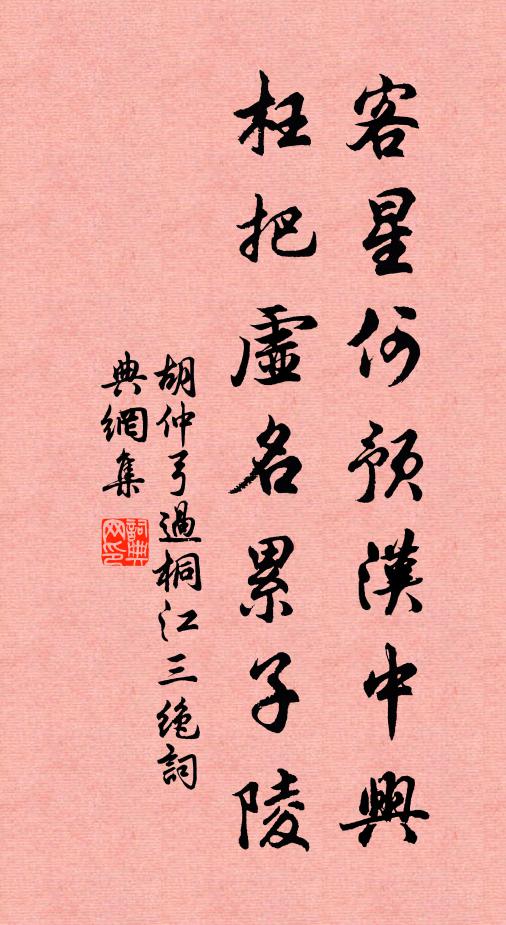 客星何預漢中興
枉把虛名累子陵
胡仲弓過桐江三絶詞
典網集
詞典網印